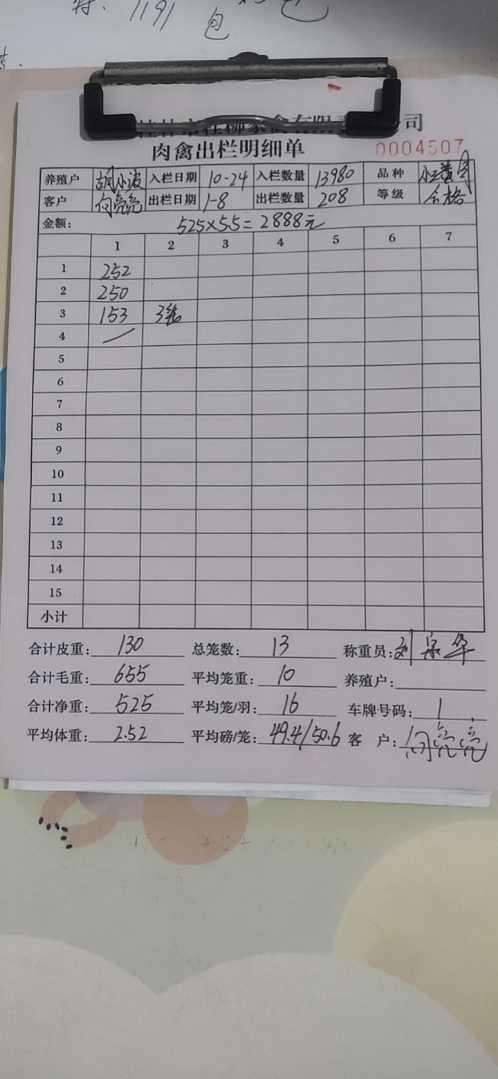 包
司
肉禽出栏明细单
0004507
养殖户 胡小波 入栏日期 10-24 入栏数量 13980 品种
客户 向亮亮 出栏日期 1-8 出栏数量 208 等级 合格
金额: 525×5.5=2888元
1 2 3 4 5 6 7
1 252
2 250
3 153
4
5
6
7
8
9
10
11
12
13
14
15
小计
合计皮重: 130 总笼数: 13 称重员:
合计毛重: 655 平均笼重: 10 养殖户:
合计净重: 525 平均笼/羽: 16 车牌号码:
平均体重: 2.52 平均磅/笼: 49.4/50.6 客 户: 向亮亮